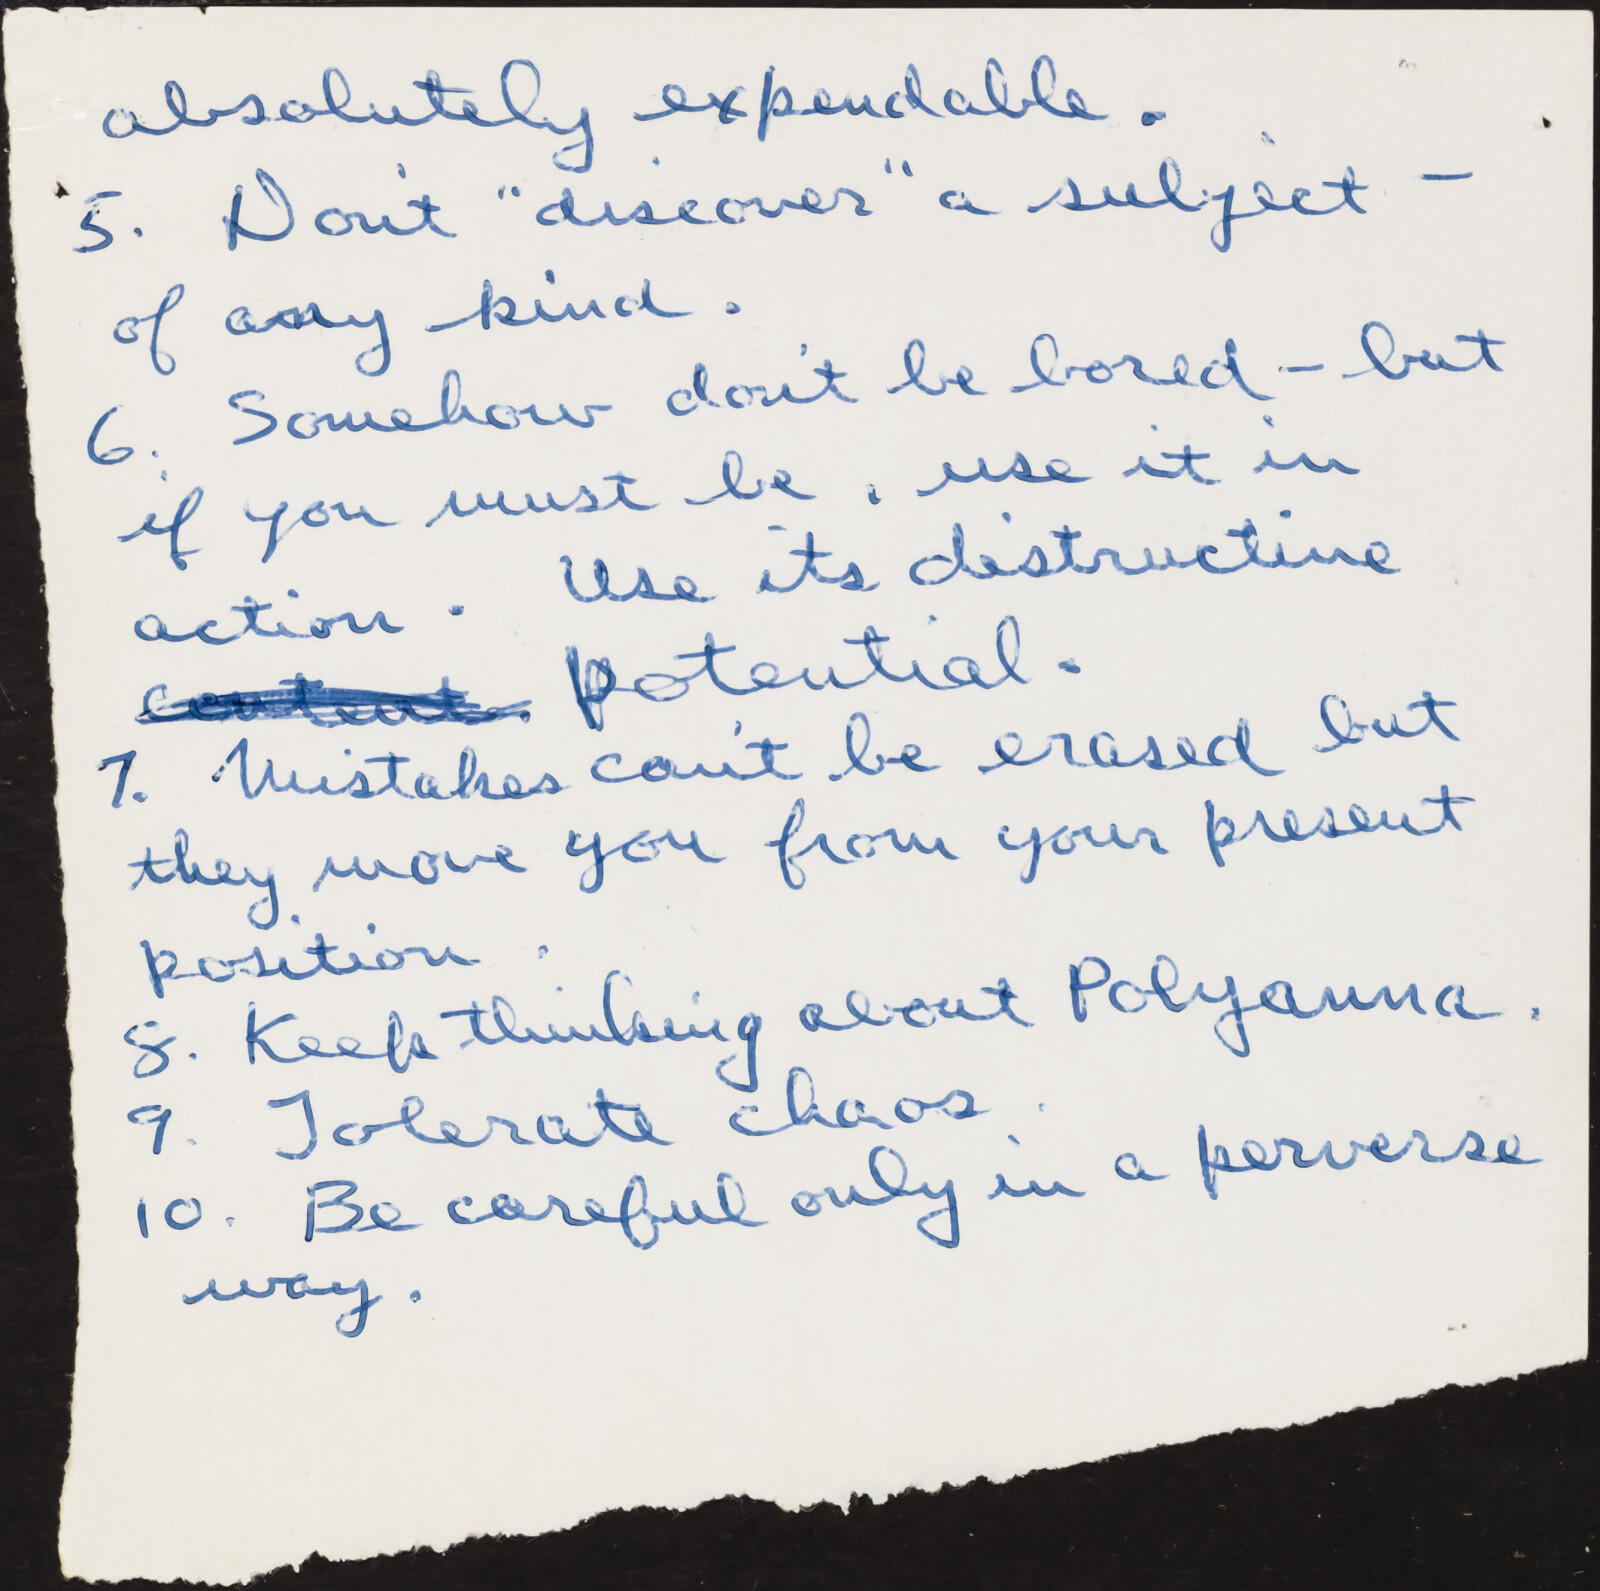 absolutely expendable.
5. Don't "discover" a subject —
of any kind.
6. Somehow don't be bored – but
if you must be, use it in
action. Use its destructive
content. potential.
7. Mistakes can't be erased but
they move you from your present
position.
8. Keep thinking about Polyanna.
9. Tolerate chaos.
10. Be careful only in a perverse
way.